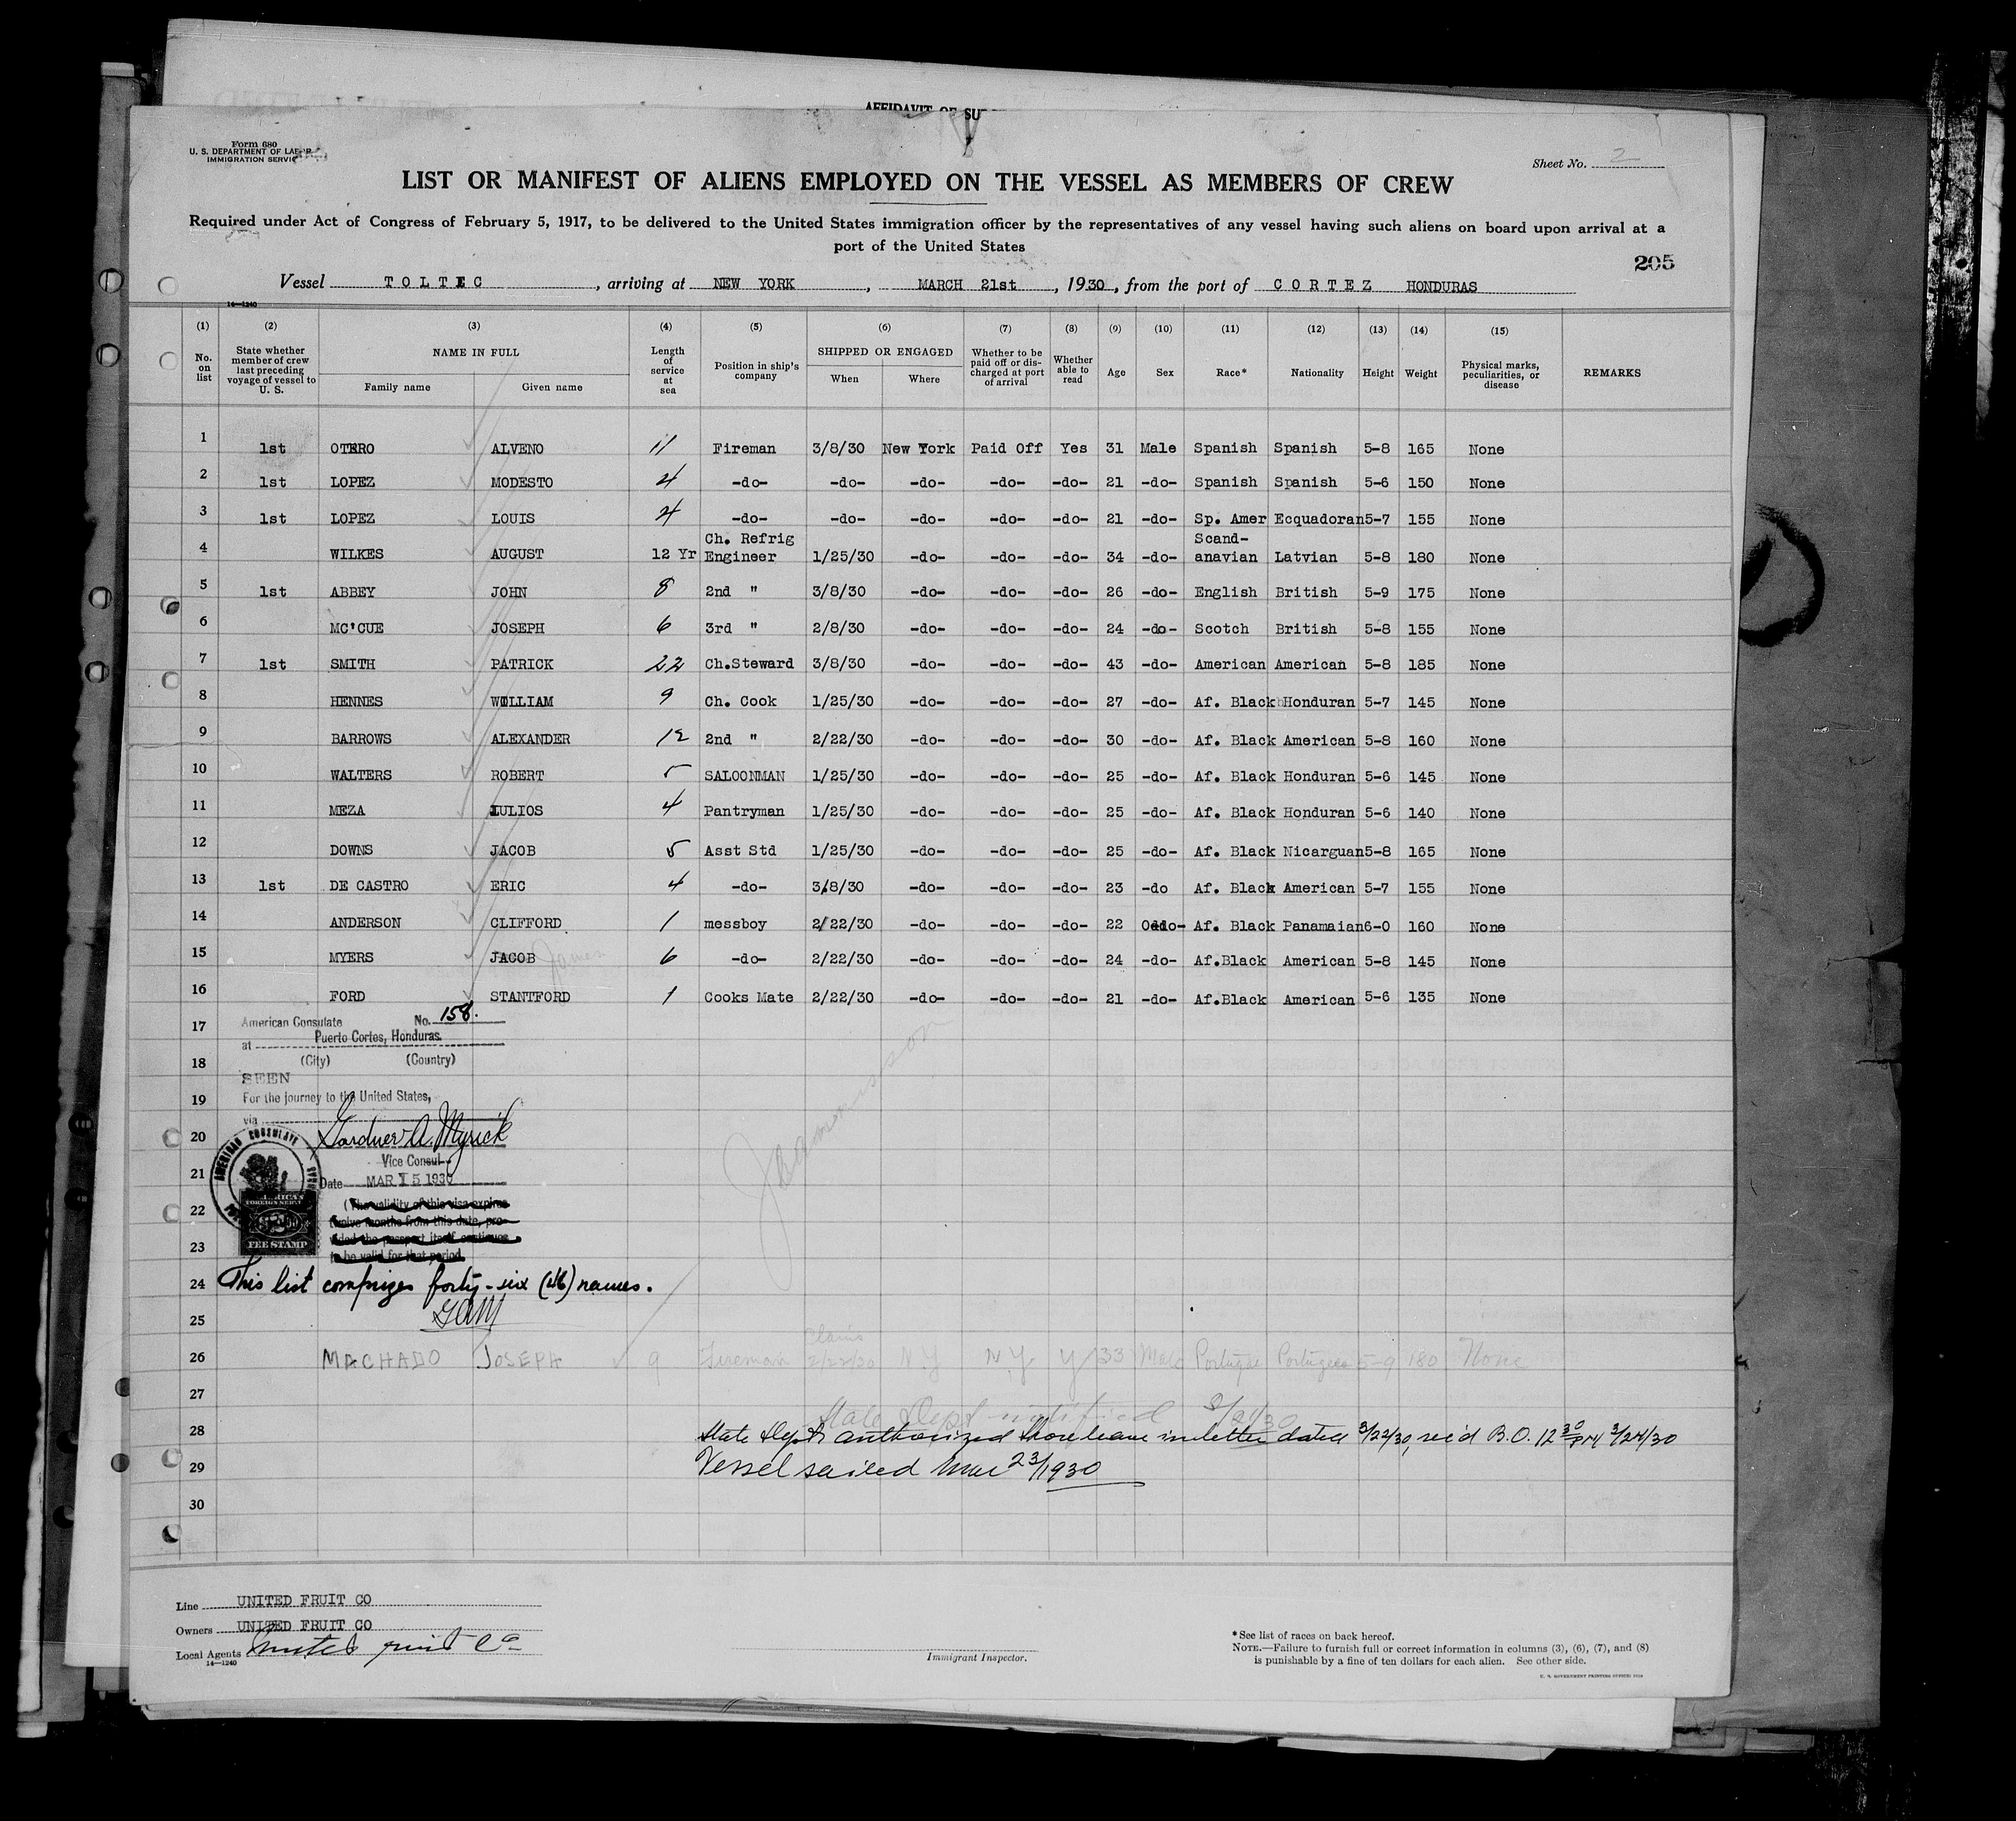 AFFIDAVIT OF SU
Form 680
U. S. DEPARTMENT OF LABOR
IMMIGRATION SERVICE
Sheet No. 2
LIST OR MANIFEST OF ALIENS EMPLOYED ON THE VESSEL AS MEMBERS OF CREW
Required under Act of Congress of February 5, 1917, to be delivered to the United States immigration officer by the representatives of any vessel having such aliens on board upon arrival at a
port of the United States
205
Vessel TOLTEC, arriving at NEW YORK, MARCH 21st, 1930, from the port of CORTEZ HONDURAS
14—1240
(1) (2) (3) (4) (5) (6) (7) (8) (9) (10) (11) (12) (13) (14) (15)
No. on list State whether member of crew last preceding voyage of vessel to U. S. NAME IN FULL Family name Given name Length of service at sea Position in ship's company SHIPPED OR ENGAGED When Where Whether to be paid off or discharged at port of arrival Whether able to read Age Sex Race* Nationality Height Weight Physical marks, peculiarities, or disease REMARKS
1 1st OTERO ALVENO 11 Fireman 3/8/30 New York Paid Off Yes 31 Male Spanish Spanish 5-8 165 None
2 1st LOPEZ MODESTO 4 -do- -do- -do- -do- -do- 21 -do- Spanish Spanish 5-6 150 None
3 1st LOPEZ LOUIS 4 -do- -do- -do- -do- -do- 21 -do- Sp. Amer Ecquadoran 5-7 155 None
4 WILKES AUGUST 12 Yr Ch. Refrig Engineer 1/25/30 -do- -do- -do- 34 -do- Scand-anavian Latvian 5-8 180 None
5 1st ABBEY JOHN 8 2nd " 3/8/30 -do- -do- -do- 26 -do- English British 5-9 175 None
6 MC'CUE JOSEPH 6 3rd " 2/8/30 -do- -do- -do- 24 -do- Scotch British 5-8 155 None
7 1st SMITH PATRICK 22 Ch.Steward 3/8/30 -do- -do- -do- 43 -do- American American 5-8 185 None
8 HENNES WILLIAM 9 Ch. Cook 1/25/30 -do- -do- -do- 27 -do- Af. Black Honduran 5-7 145 None
9 BARROWS ALEXANDER 12 2nd " 2/22/30 -do- -do- -do- 30 -do- Af. Black American 5-8 160 None
10 WALTERS ROBERT 5 SALOONMAN 1/25/30 -do- -do- -do- 25 -do- Af. Black Honduran 5-6 145 None
11 MEZA IULIOS 4 Pantryman 1/25/30 -do- -do- -do- 25 -do- Af. Black Honduran 5-6 140 None
12 DOWNS JACOB 5 Asst Std 1/25/30 -do- -do- -do- 25 -do- Af. Black Nicarguan 5-8 165 None
13 1st DE CASTRO ERIC 4 -do- 3/8/30 -do- -do- -do- 23 -do Af. Black American 5-7 155 None
14 ANDERSON CLIFFORD 1 messboy 2/22/30 -do- -do- -do- 22 -do- Af. Black Panamaian 6-0 160 None
15 MYERS JACOB James 6 -do- 2/22/30 -do- -do- -do- 24 -do- Af.Black American 5-8 145 None
16 FORD STANTFORD 1 Cooks Mate 2/22/30 -do- -do- -do- 21 -do- Af.Black American 5-6 135 None
17 American Consulate No. 158.
at Puerto Cortes, Honduras.
18 (City) (Country)
SEEN
19 For the journey to the United States,
via
20 Gardner A. Myrick
AMERICAN CONSULATE
Vice Consul
21 Date MAR 15 1930
22 (The validity of this visa expires
twelve months from this date, pro-
23 vided the passport itself continues
to be valid for that period.
FEE STAMP
24 This list comprizes forty-six (46) names.
25 GAM
26 MACHADO JOSEPH 9 Fireman Claims 2/22/30 N Y N.Y. Y 33 Male Portugee Portugese 5-9 180 None
27 State Dept notified 3/21/30
28 State Dept authorized shore leave in letter dated 3/22/30, rec'd B.O. 12 30 PM 3/24/30
29 Vessel sailed Mar 23/1930
30
Line UNITED FRUIT CO
Owners UNITED FRUIT CO
Local Agents United Fruit Co
14—1240
Immigrant Inspector.
* See list of races on back hereof.
NOTE.—Failure to furnish full or correct information in columns (3), (6), (7), and (8)
is punishable by a fine of ten dollars for each alien. See other side.